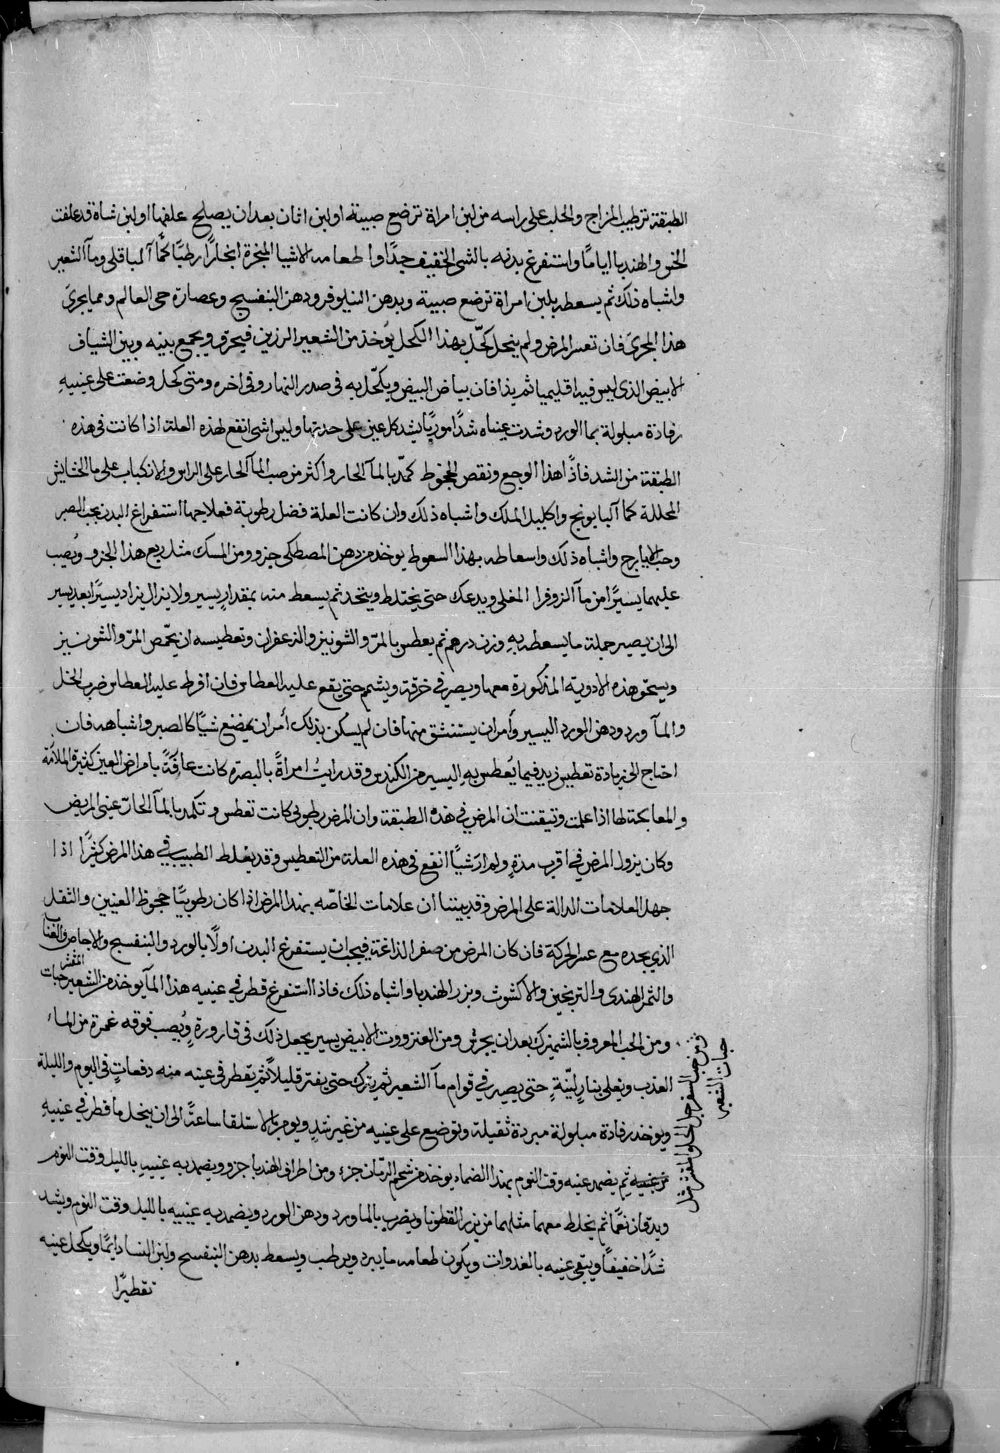 الطبقة ترطيب المزاج والحلب على راسه من لبن امراة ترضع صبية او لبن اتان بعد ان يصلح علفها او لبن شاة قد علفت
الخس والهندبا اياما واستفرغ بدنه بالشي الخفيف جدا واطعامه الاشيا المبخرة ابخارا رطبا كماآ الباقلي ومآ الشعير
واشباه ذلك ثم يسعطه بلبن امراة ترضع صبية وبدهن النيلوفر ودهن البنفسج وعصارة حي العالم ومما يجري
هذا المجرى فان تعسر المرض ولم ينحل كحّل بهذا الكحل يُوخذ من الشعير الرزين فيحرق ويجمع بينه وبين الشياف
الابيض الذي ليس فيه اقليميا ثم يذافان ببياض البيض ويكحّل به في صدر النهار وفي اخره ومتى كحل وضعت على عينيه
رفادة مبلولة بما الورد وشدت عيناه شدا موربا يشد كل عين على حدتها وليس شي انفع لهذه العلة اذا كانت في هذه
الطبقة من الشد فاذا هذا الوجع ونقص الجحوظ كمد بالمآ الحار واكثر من صب المآ الحار على الراس والانكباب على ما الحشايش
المحللة كمآ البابونج واكليل الملك واشباه ذلك وان كانت العلة فضل رطوبة فعلاجها استفراغ البدن بحب الصبر
وحب الايارج واشباه ذلك واسعاطه بهذا السعوط يوخذ من دهن المصطكي جزو ومن المسك مثل ربع هذا الجزو ويُصب
عليهما يسيرا من مآ الزوفرا المغلي ويدعك حتى يختلط ويتحد ثم يسعط منه بمقدار يسير ولا يزال يزاد يسيرا بعد يسير
الى ان يصير جملة ما يسعط به وزن درهم ثم يعطس بالمر والشونيز والزعفران وتعطيسه ان يحمص المر والشونيز
ويسحق هذه الادوية المذكورة معها ويصر في خرقة ويشم حتى يقع عليه العطاس فان افرط عليه العطاس ضرب الخل
والمآ ورد ودهن الورد اليسير وأمر ان يستنشق منها فان لم يسكن بذلك أمر ان يمضغ شيا كالصبر واشباهه فان
احتاج الى زيادة تعطيس زيد فيما يُعطس به اليسير من الكندس وقد رايتُ امراةً بالبصرة كانت عارفة بامراض العين كثيرة الملازمة
والمعالجة لها اذا علمت وتيقنت ان المرض في هذه الطبقة وان المرض رطوبي كانت تعطس وتكمد بالمآ الحار عيني المريض
وكان يزول المرض في اقرب مدة ولم ار شيا انفع في هذه العلة من التعطيس وقد يغلط الطبيب في هذا المرض كثيرا اذا
جهل العلامات الدالة على المرض وقد بيننا ان علامات الخاصه بهذا المرض اذا كان رطوبيا جحوظ العينين والثقل
الذي يجده مع عسر الحركة فان كان المرض من صفرا لذاغة فيجب ان يستفرغ البدن اولًا بالورد والبنفسج والاجاص والعناب
والتمر الهندي والترنجين والاكشوث وبزر الهندبا واشباه ذلك فاذا استفرغ قطر في عينيه هذا المآ يوخذ من الشعير المقشر حبات
ومن الحب المعروف بالشميزك بعد ان يجرش ومن العنزروت الابيض يسير يجعل ذلك في قارورة ويُصب فوقه غمرة من الماء
العذب ويغلي بنار ليّنة حتى يصير في قوام مآ الشعير ثم يترك حتى يفتر قليلًا ثم يقطر في عينه منه دفعات في اليوم والليلة
ويوخذ رفادة مبلولة مبردة ثقيلة وتوضع على عينيه من غير شد ويومر بالاستلقا ساعة الى ان ينحل ما قطر في عينيه
من عينيه ثم يضمد عينه وقت النوم بهذا الضماد يوخذ من شحم الرمان جزء ومن اطراف الهندبا جزو ويضمد به عينيه بالليل وقت النوم
ويدقان نعمًا ثم يخلط معهما مثلهما من بزر القطونا ويضرب بالماورد ودهن الورد ويضمد به عينيه بالليل وقت النوم ويشد
شدا خفيفا ويبقى عينه بالغدوات ويكون طعامه ما يبرد ويرطب ويسعط بدهن البنفسج ولبن النسا دايما ويكحل عينه
تقطيرًا
ومن حب السفرجل الحلو المقشر مثل
حبات الشعير